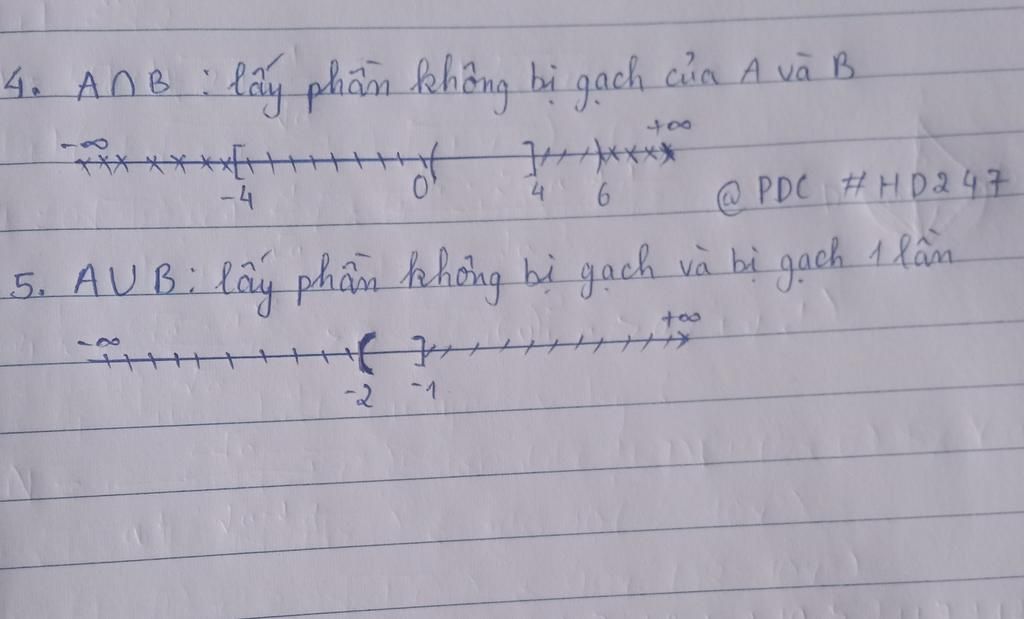 4. A∩B : lấy phần không bị gạch của A và B
-∞ [ ( ] +∞
-4 0 4 6
@PDC #HD247
5. A∪B : lấy phần không bị gạch và bị gạch 1 lần
-∞ ( ] +∞
-2 -1